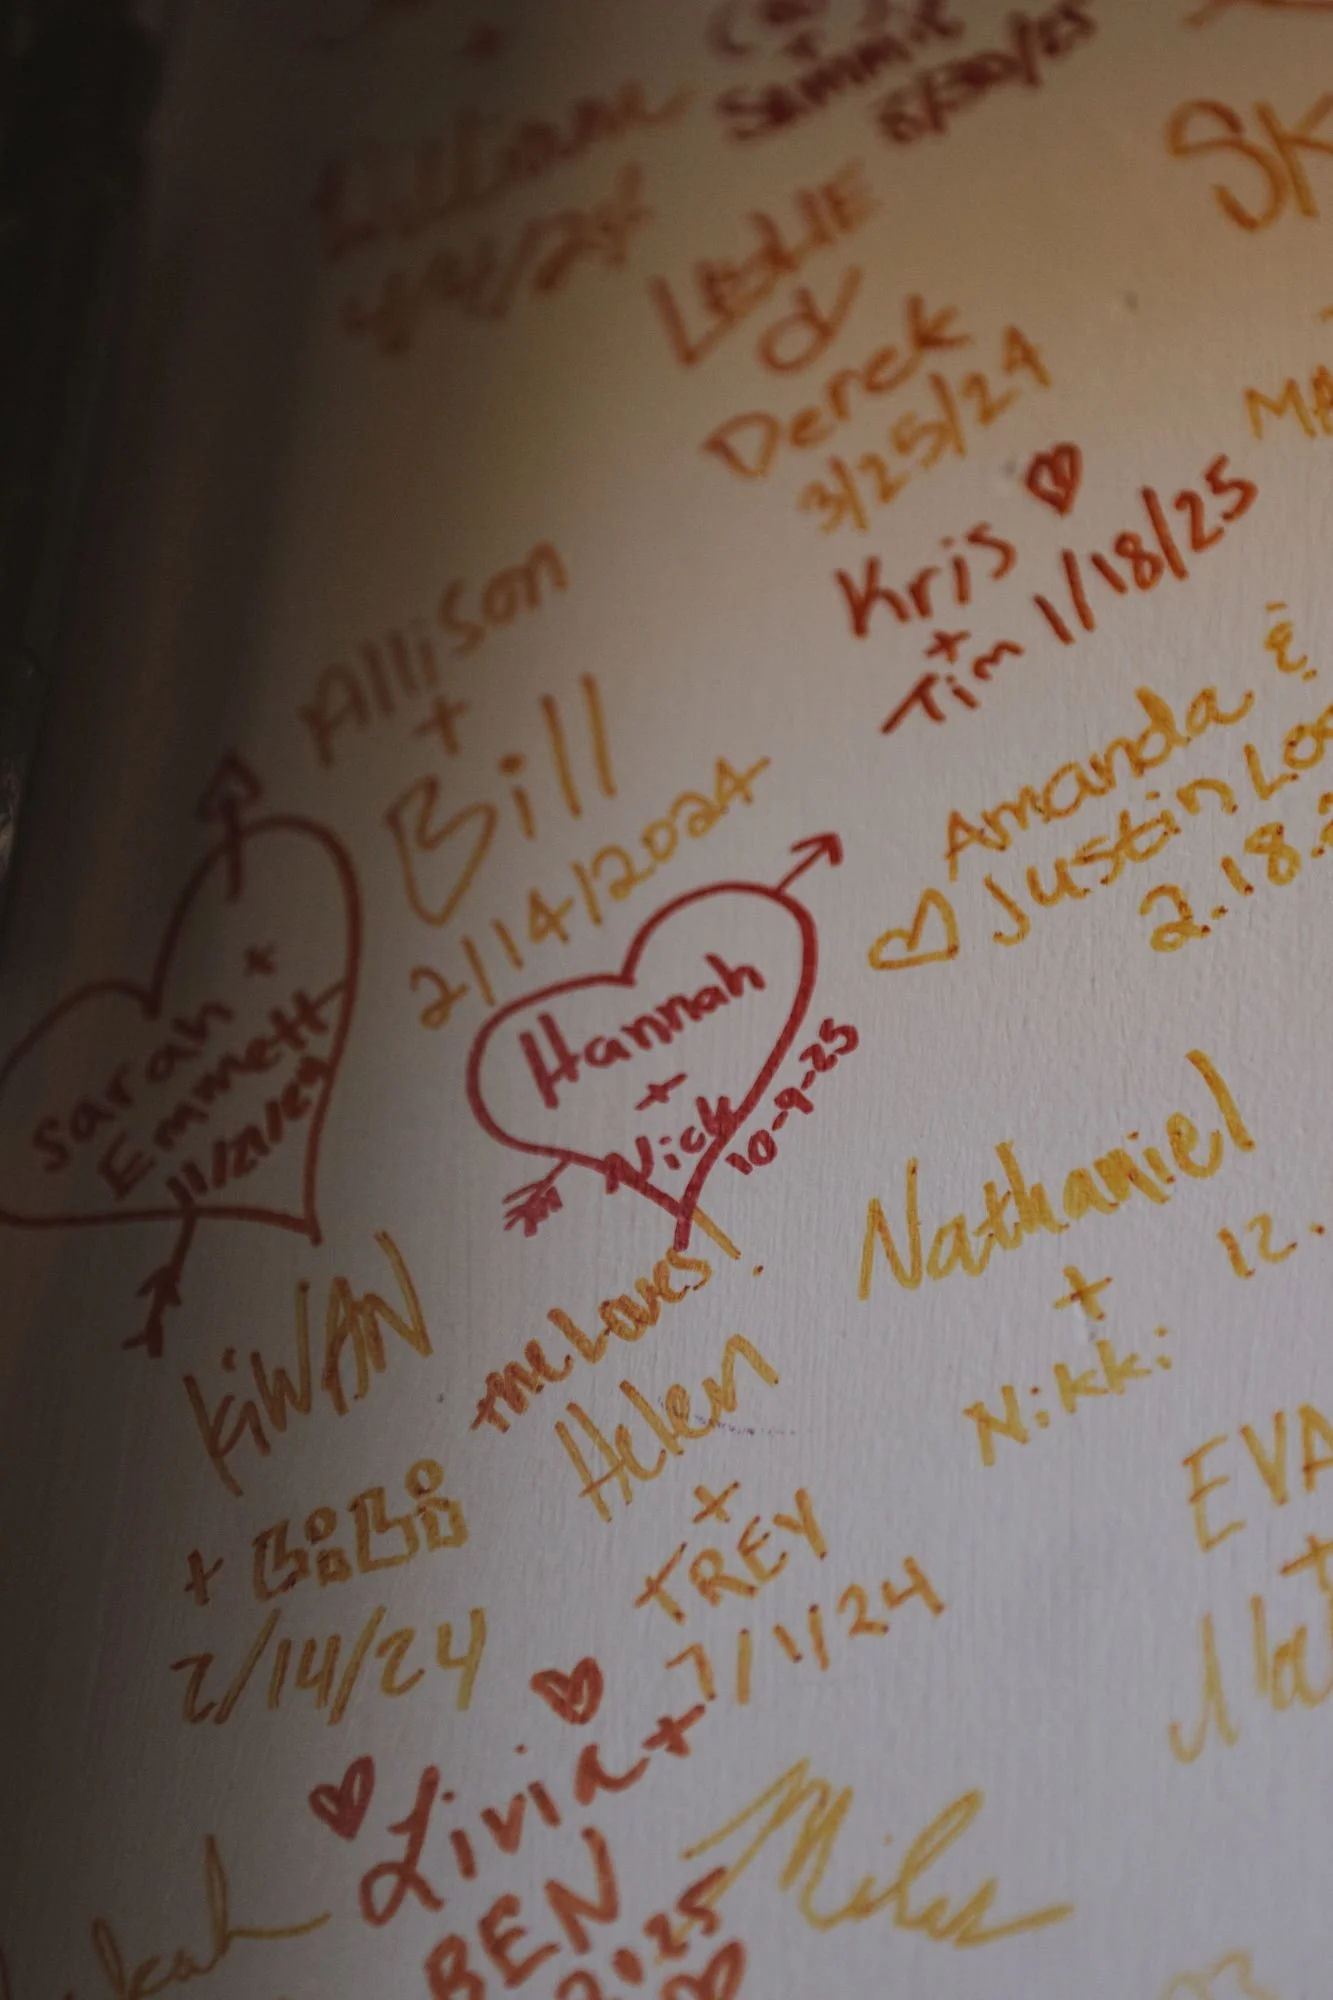 Sammie
8/30/25
SK
LESLIE
&
Derek
3/25/24
MA
Kris
+
Tim 1/18/25
Allison
+
Bill
2/14/2024
Amanda &
Justin
2.18.
Sarah +
Emmett
Hannah
+
Nick
10-9-25
Nathaniel
+
Nikki
12.
KiWAN
+ BiBi
2/14/24
the Loves!
Helen
+
TREY
7/1/24
EVA
+
Livia +
BEN